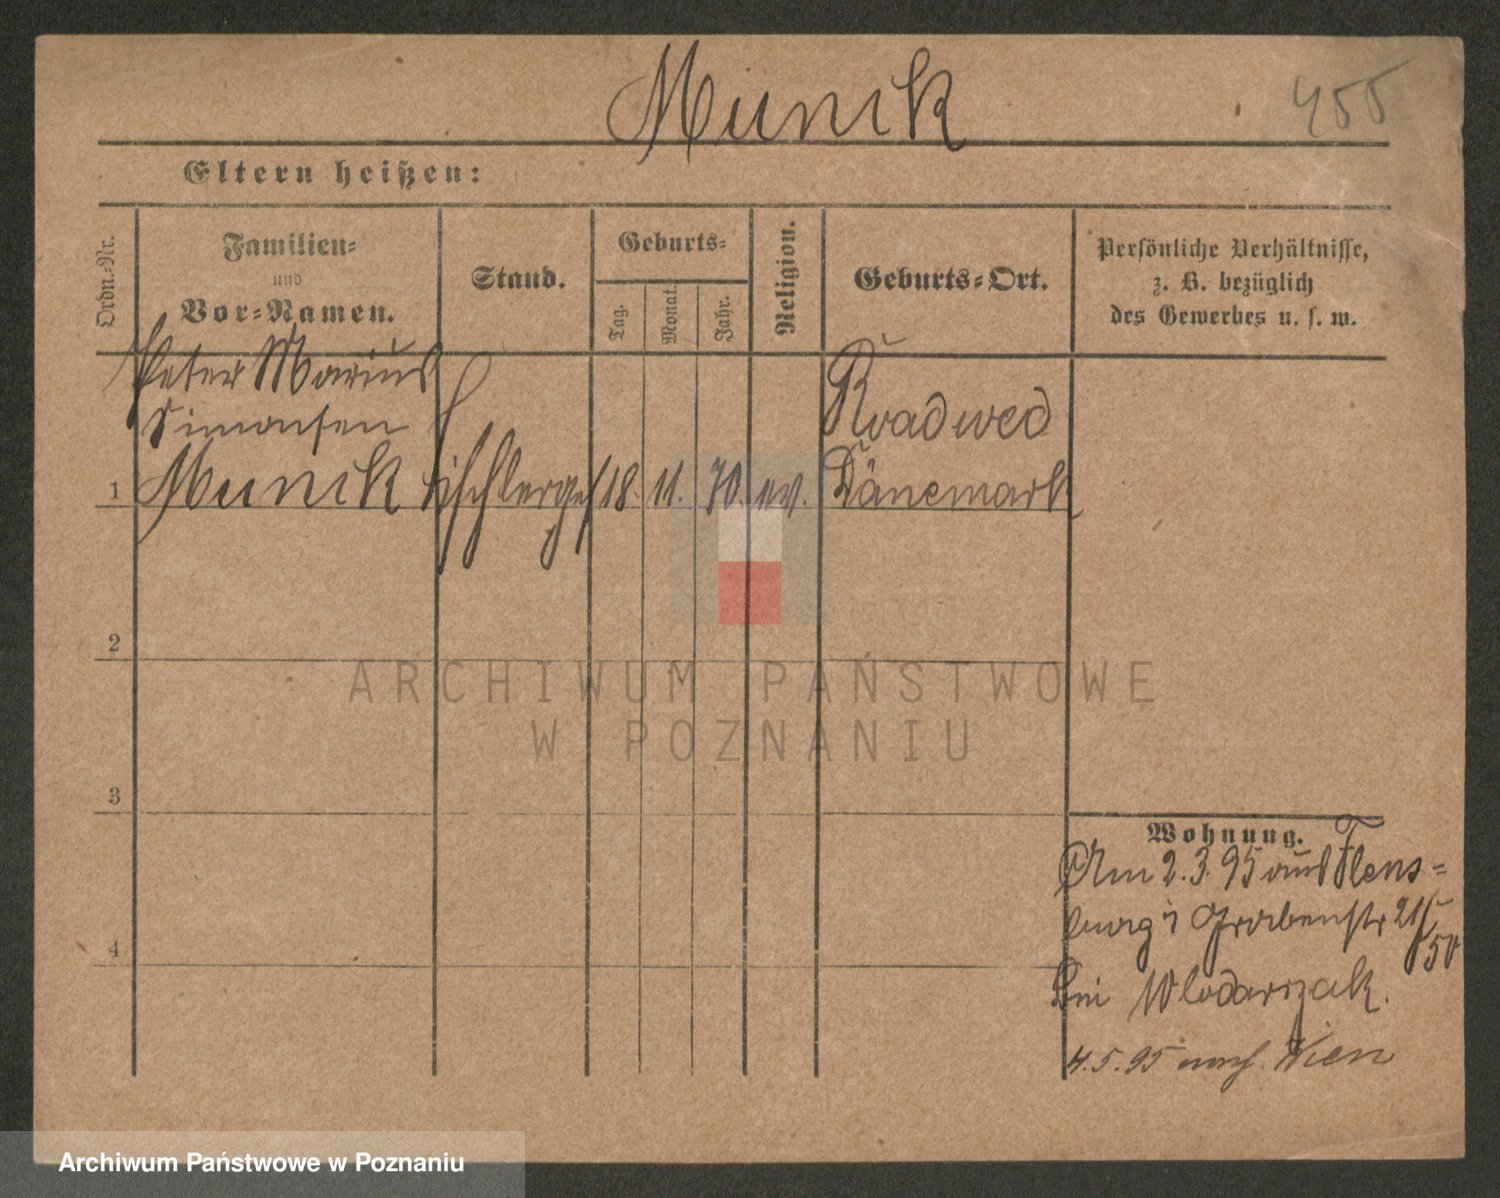 Munik
455
Eltern heißen:
Ordn.-Nr.
Familien-
und
Vor-Namen.
Stand.
Geburts-
Tag.
Monat.
Jahr.
Religion.
Geburts-Ort.
Persönliche Verhältnisse,
z. B. bezüglich
des Gewerbes u. s. w.
Peter Marius
Simonsen
Munik
1
Tischlerges
18.
11.
70.
ev.
Roadwed
Dänemark
2
3
4
Wohnung.
Am 2.3.95 aus Flens-
burg Grabenstr 21/
50
bei Wlodarczak.
4.5.95 nach Wien
ARCHIWUM PAŃSTWOWE
W POZNANIU
Archiwum Państwowe w Poznaniu